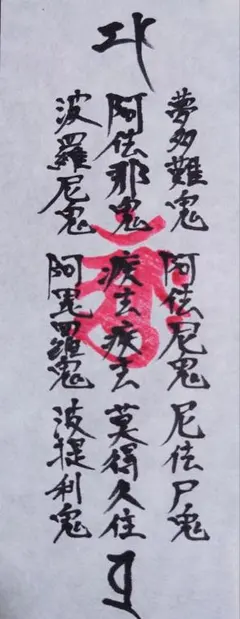 夢多難鬼 阿佉尼鬼 尼佉尸鬼
阿佉那鬼 疾去疾去 莫得久住
波羅尼鬼 阿毘羅鬼 波提利鬼